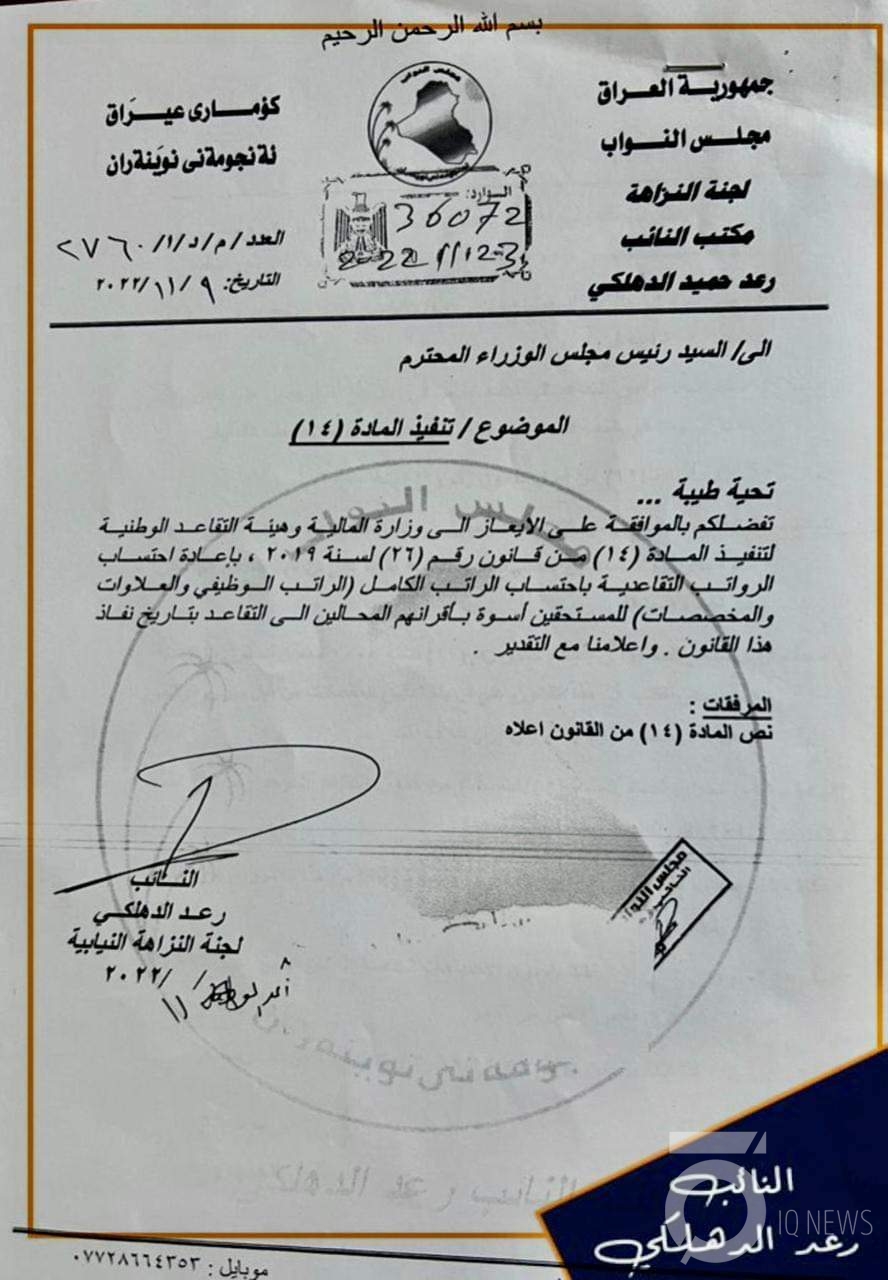 بسم الله الرحمن الرحيم
جمهورية العراق
مجلس النواب
لجنة النزاهة
مكتب النائب
رعد حميد الدهلكي
مجلس النواب
الوارد:
36072
2022 11 23
كؤمارى عيَراق
ئة نجومةنى نويَنةران
العدد / م / د / ١ / ٢٧٦٠
التاريخ: ٩ / ١١ / ٢٠٢٢
الى/ السيد رئيس مجلس الوزراء المحترم
الموضوع / تنفيذ المادة (١٤)
تحية طيبة ...
تفضلكم بالموافقة على الايعاز الى وزارة المالية وهيئة التقاعد الوطنية
لتنفيذ المادة (١٤) من قانون رقم (٢٦) لسنة ٢٠١٩ ، بإعادة احتساب
الرواتب التقاعدية باحتساب الراتب الكامل (الراتب الوظيفي والعلاوات
والمخصصات) للمستحقين أسوة بأقرانهم المحالين الى التقاعد بتاريخ نفاذ
هذا القانون . واعلامنا مع التقدير .
المرفقات :
نص المادة (١٤) من القانون اعلاه
النائب
رعد الدهلكي
لجنة النزاهة النيابية
/ ١١ / ٢٠٢٢
مجلس النواب
النائب رعد الدهلكي
موبايل : ٠٧٧٢٨٦٦٤٣٥٣
النائب
رعد الدهلكي
IQ NEWS